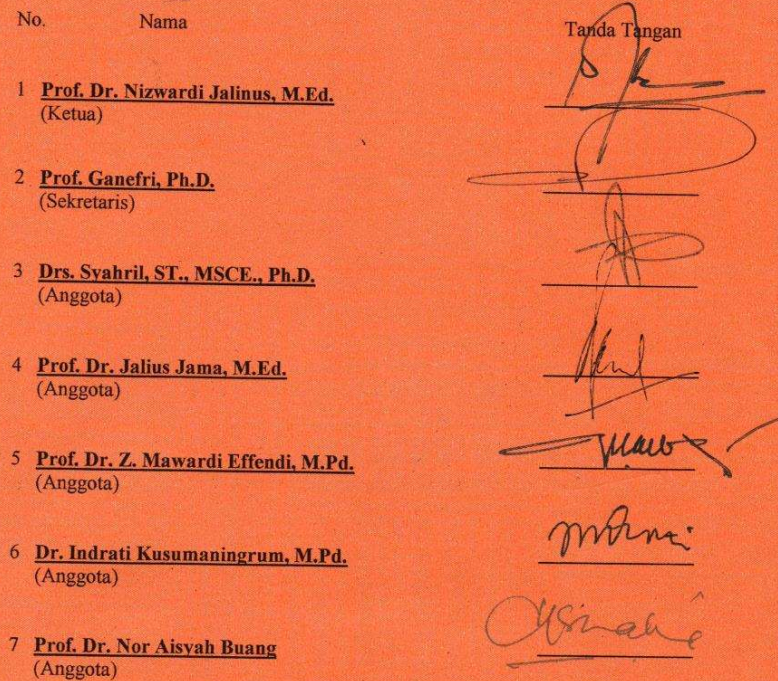 No. Nama Tanda Tangan
1 Prof. Dr. Nizwardi Jalinus, M.Ed.
(Ketua)
2 Prof. Ganefri, Ph.D.
(Sekretaris)
3 Drs. Syahril, ST., MSCE., Ph.D.
(Anggota)
4 Prof. Dr. Jalius Jama, M.Ed.
(Anggota)
5 Prof. Dr. Z. Mawardi Effendi, M.Pd.
(Anggota)
6 Dr. Indrati Kusumaningrum, M.Pd.
(Anggota)
7 Prof. Dr. Nor Aisyah Buang
(Anggota)